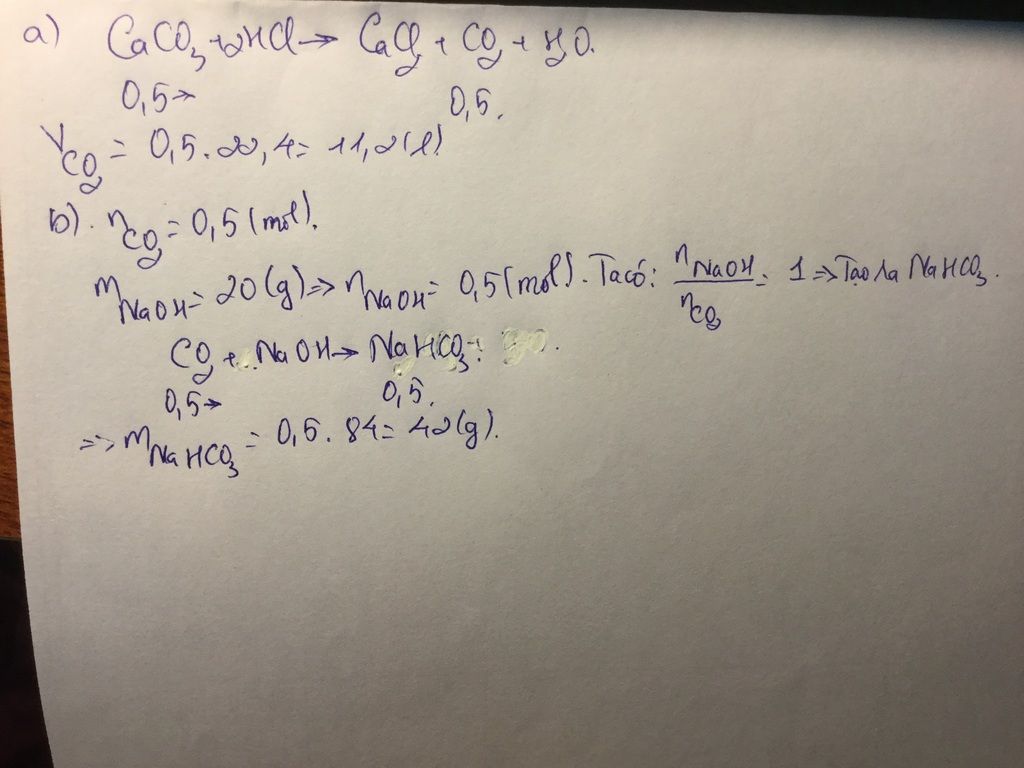 a) CaCO₃ + 2HCl → CaCl₂ + CO₂ + H₂O.
0,5 → 0,5.
V CO₂ = 0,5 . 22,4 = 11,2 (l).
b). n CO₂ = 0,5 (mol).
m NaOH = 20 (g) => n NaOH = 0,5 (mol). Ta có: n NaOH / n CO₂ = 1 => Tạo ra NaHCO₃.
CO₂ + NaOH → NaHCO₃
0,5 → 0,5.
=> m NaHCO₃ = 0,5 . 84 = 42 (g).